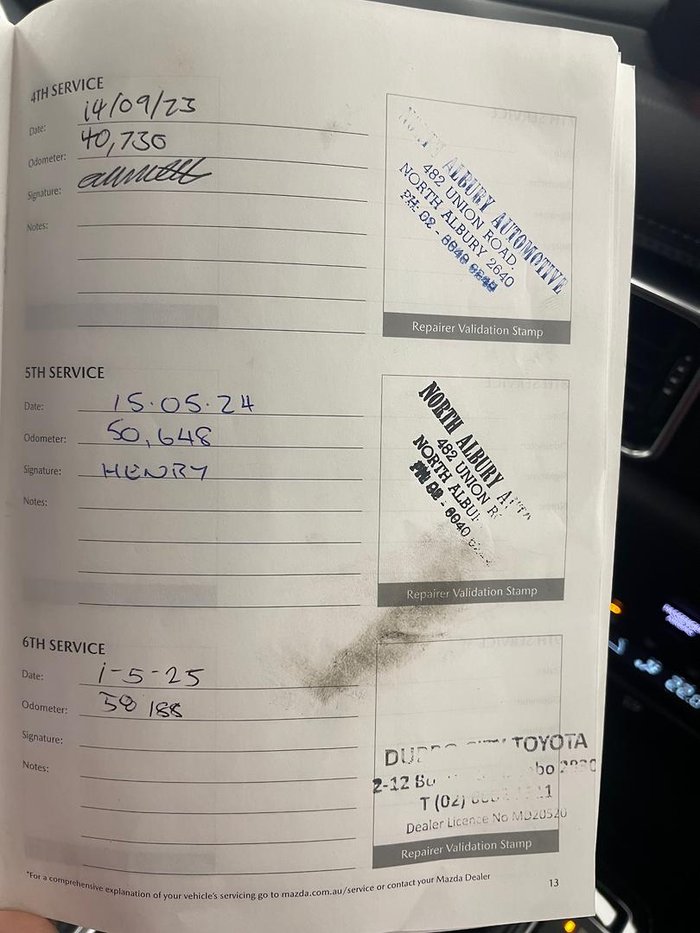 4TH SERVICE
Date: 14/09/23
Odometer: 40,730
Signature:
Notes:
NORTH ALBURY AUTOMOTIVE
482 UNION ROAD.
NORTH ALBURY 2640
PH: 02 - 6040
Repairer Validation Stamp
5TH SERVICE
Date: 15.05.24
Odometer: 50,648
Signature: HENRY
Notes:
NORTH ALBURY
482 UNION
NORTH
02 - 6040
Repairer Validation Stamp
6TH SERVICE
Date: 1-5-25
Odometer: 58 188
Signature:
Notes:
TOYOTA
2-12
T (02)
Dealer Licence No MD20520
Repairer Validation Stamp
*For a comprehensive explanation of your vehicle's servicing go to mazda.com.au/service or contact your Mazda Dealer
13